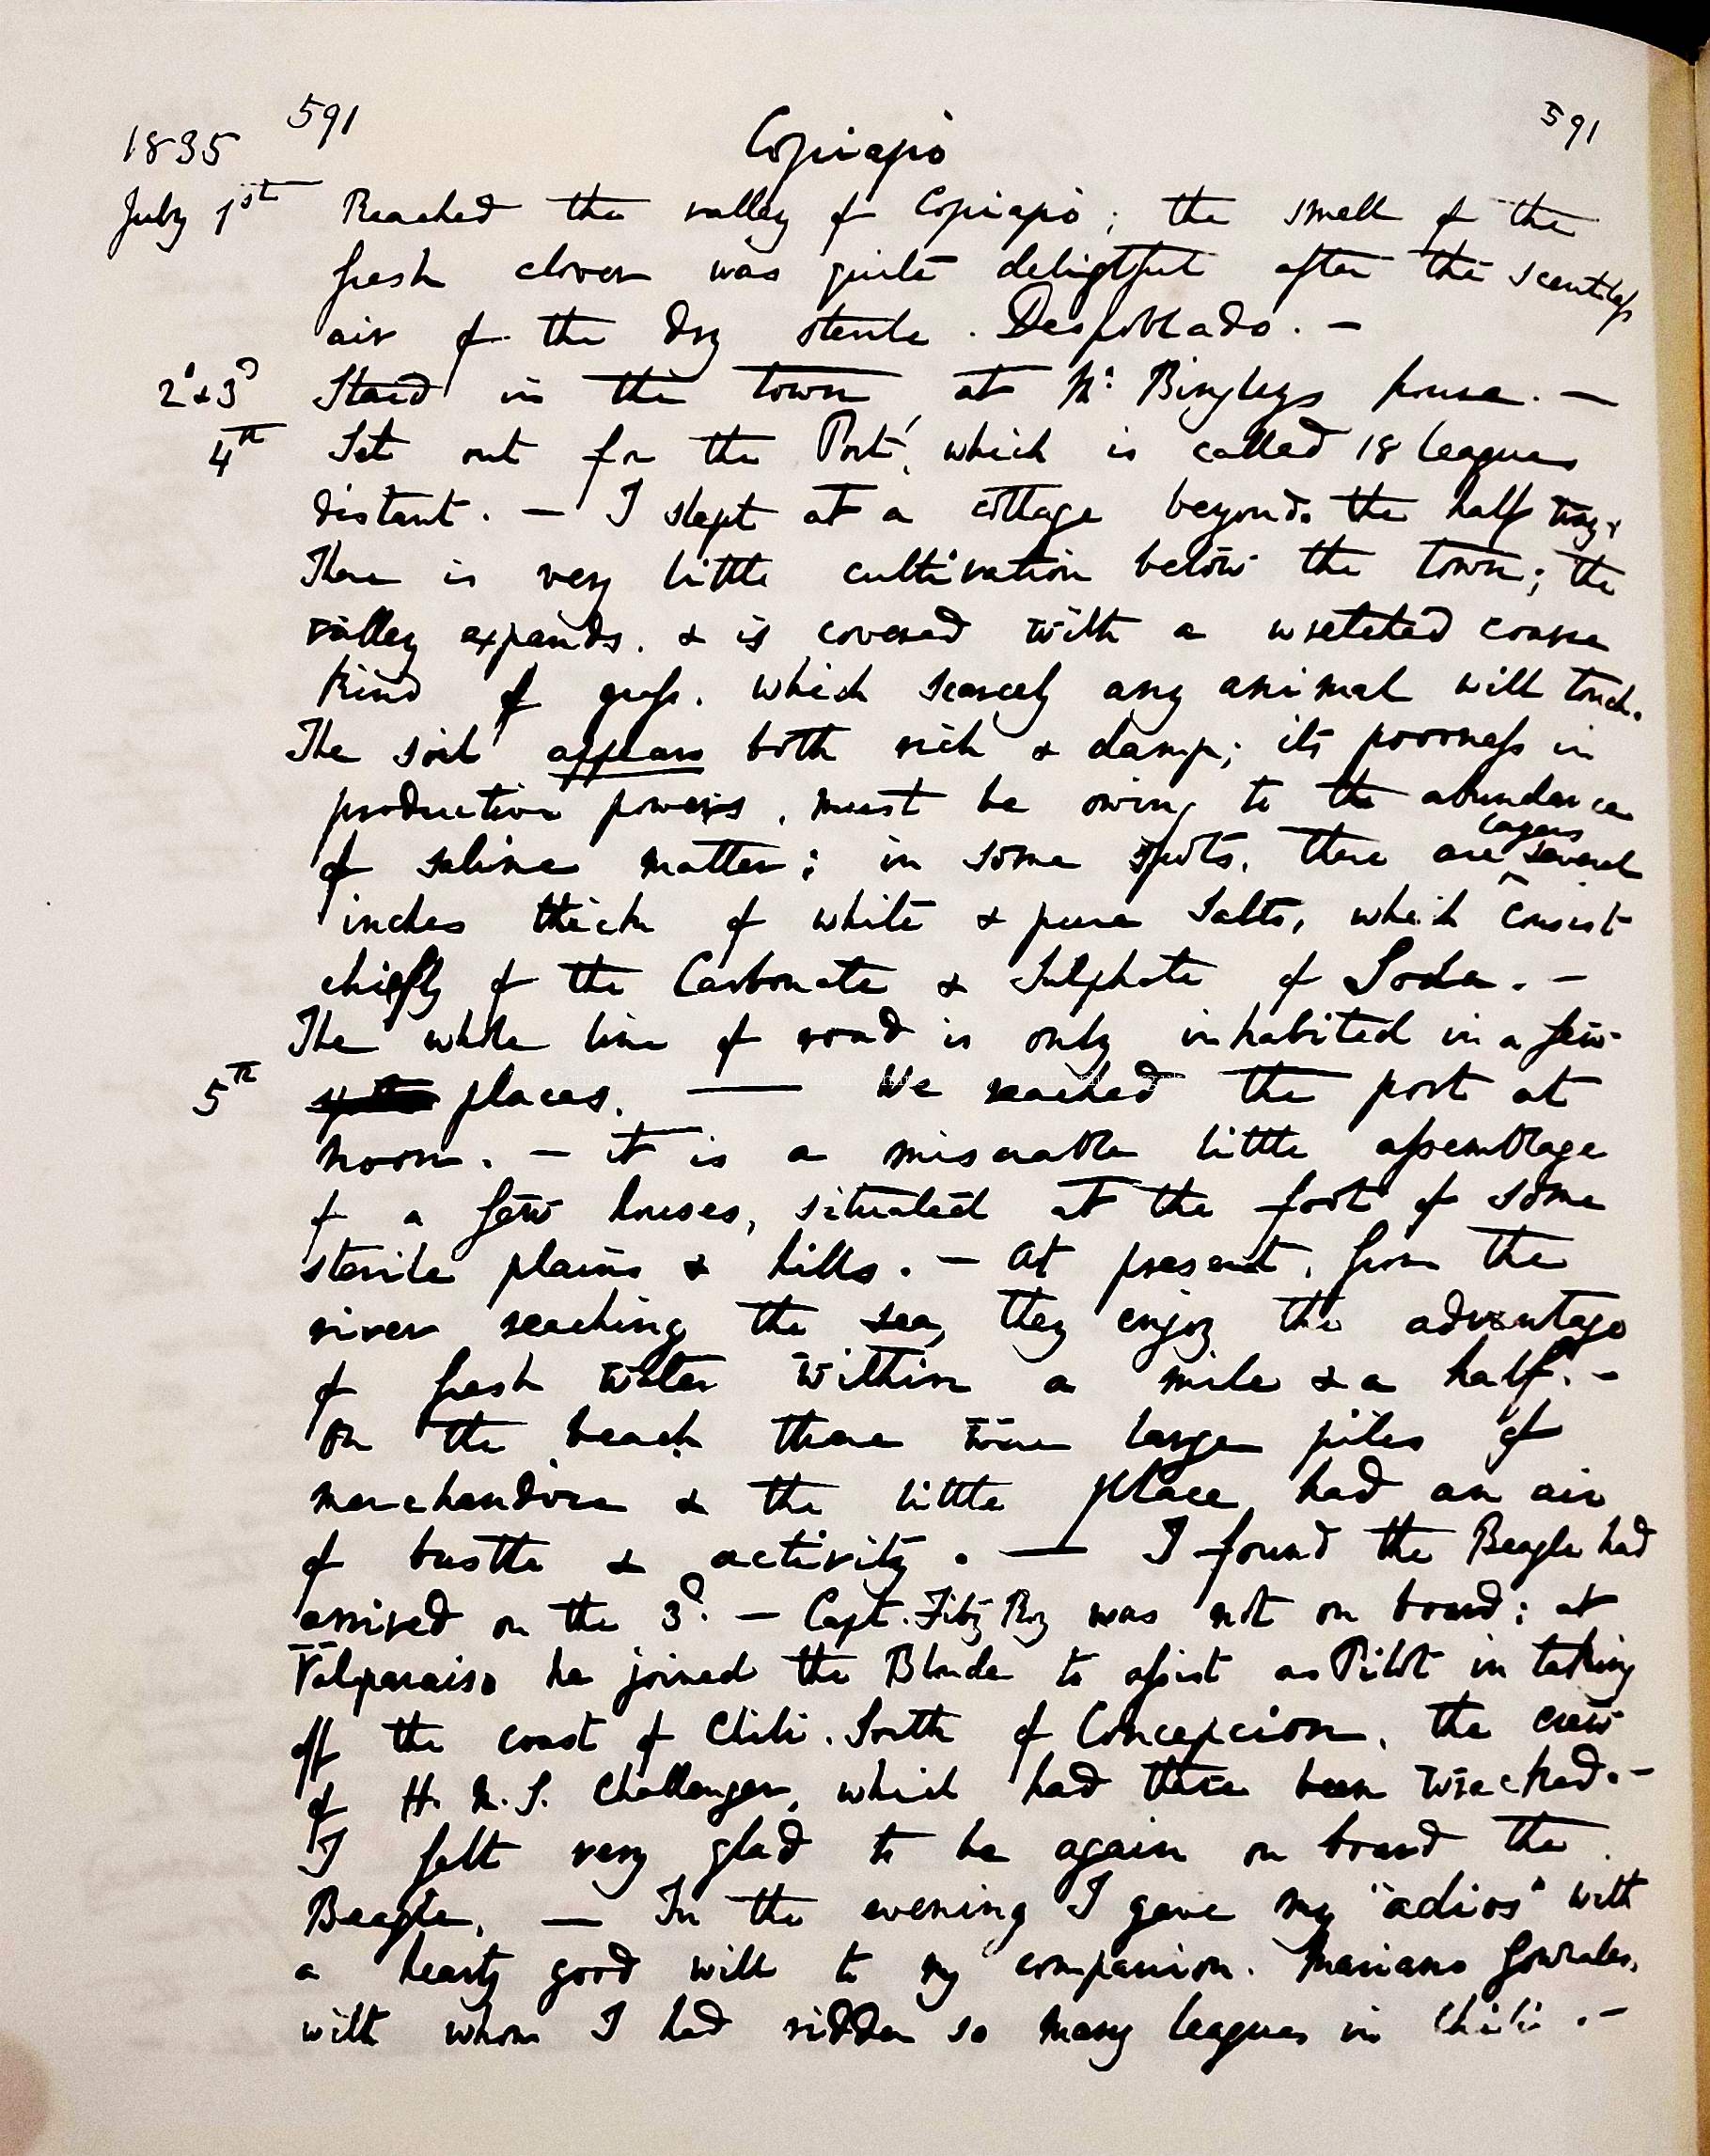 1835 591 Copiapò 591
July 1st Reached the valley of Copiapò; the smell of the
fresh clover was quite delightful after the scentless
air of the dry sterile Despoblado. —
2d & 3d Staid in the town at Mr Bingleys house. —
4th Set out for the Port, which is called 18 leagues
distant. — I slept at a cottage beyond the half way.
There is very little cultivation below the town; the
valley expands. & is covered with a wretched coarse
kind of grass, which scarcely any animal will touch.
The soil appears both rich & damp; its poorness in
productive powers, must be owing to the abundance
layers
of saline matter; in some spots, there are several
inches thick of white & pure Salts, which consist
chiefly of the Carbonate & Sulphate of Soda. —
The whole line of road is only inhabited in a few
5th places. — We reached the port at
noon. — it is a miserable little assemblage
of a few houses, situated at the foot of some
sterile plains & hills. — At present, from the
river reaching the sea, they enjoy the advantage
of fresh water within a mile & a half. —
On the beach there were large piles of
merchandise & the little place had an air
of bustle & activity. — I found the Beagle had
arrived on the 3d. — Capt. FitzRoy was not on board; at
Valparaiso he joined the Blonde to assist as Pilot in taking
off the coast of Chili, South of Concepcion, the crew
of H.M.S. Challenger, which had there been wrecked. —
I felt very glad to be again on board the
Beagle. — In the evening I gave my "adios" with
a hearty good will to my companion. Mariano Gonzales,
with whom I had ridden so many leagues in Chili. —